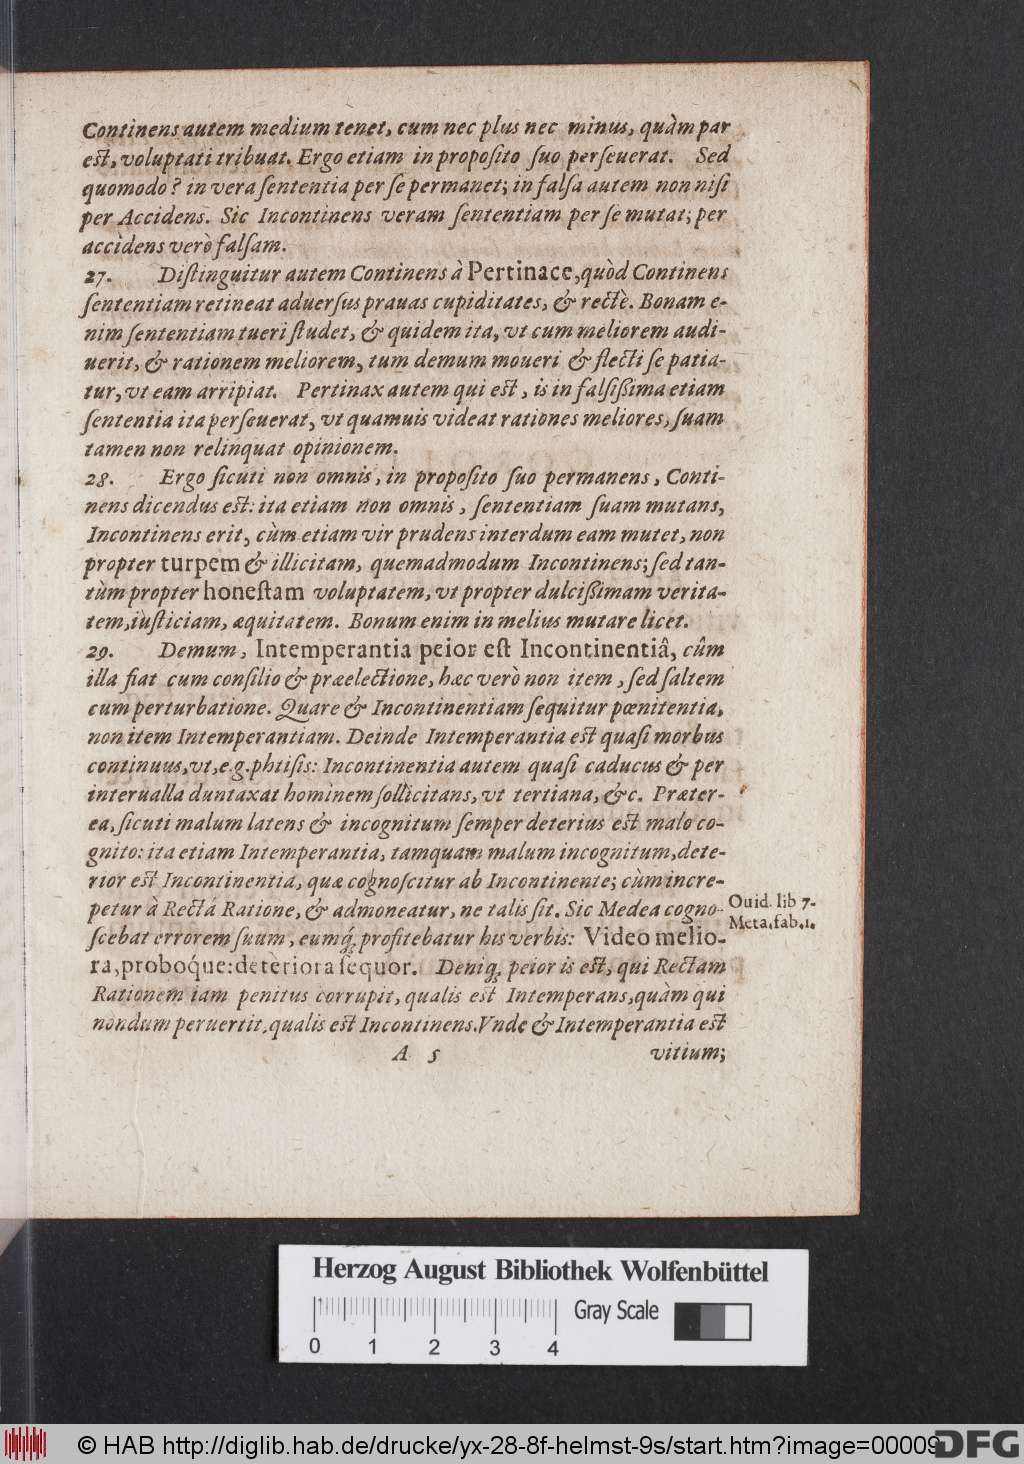 Continens autem medium tenet, cum nec plus nec minus, quàm par
est, voluptati tribuat. Ergo etiam in proposito suo perseuerat. Sed
quomodo? in vera sententia per se permanet; in falsa autem non nisi
per Accidens. Sic Incontinens veram sententiam per se mutat; per
accidens verò falsam.
27. Distinguitur autem Continens à Pertinace, quòd Continens
sententiam retineat aduersus prauas cupiditates, & rectè. Bonam e-
nim sententiam tueri studet, & quidem ita, vt cum meliorem audi-
uerit, & rationem meliorem, tum demum moueri & flecti se patia-
tur, vt eam arripiat. Pertinax autem qui est, is in falsißima etiam
sententia ita perseuerat, vt quamuis videat rationes meliores, suam
tamen non relinquat opinionem.
28. Ergo sicuti non omnis, in proposito suo permanens, Conti-
nens dicendus est: ita etiam non omnis, sententiam suam mutans,
Incontinens erit, cùm etiam vir prudens interdum eam mutet, non
propter turpem & illicitam, quemadmodum Incontinens; sed tan-
tùm propter honestam voluptatem, vt propter dulcißimam verita-
tem, iusticiam, æquitatem. Bonum enim in melius mutare licet.
29. Demum, Intemperantia peior est Incontinentiâ, cûm
illa fiat cum consilio & præelectione, hæc verò non item, sed saltem
cum perturbatione. Quare & Incontinentiam sequitur pœnitentia,
non item Intemperantiam. Deinde Intemperantia est quasi morbus
continuus, vt, e.g. phtisis: Incontinentia autem quasi caducus & per
interualla duntaxat hominem sollicitans, vt tertiana, &c. Præter-
ea, sicuti malum latens & incognitum semper deterius est malo co-
gnito: ita etiam Intemperantia, tamquam malum incognitum, dete-
rior est Incontinentia, quæ cognoscitur ab Incontinente; cùm incre-
petur à Rectá Ratione, & admoneatur, ne talis sit. Sic Medea cogno-
Ouid. lib 7.
Meta. fab. 1.
scebat errorem suum, eumq́; profitebatur his verbis: Video melio-
ra, proboq́ue: deteriora sequor. Deniq; peior is est, qui Rectam
Rationem iam penitus corrupit, qualis est Intemperans, quàm qui
nondum peruertit, qualis est Incontinens. Vnde & Intemperantia est
A 5 vitium;
Herzog August Bibliothek Wolfenbüttel
Gray Scale
0 1 2 3 4
© HAB http://diglib.hab.de/drucke/yx-28-8f-helmst-9s/start.htm?image=00009
DFG